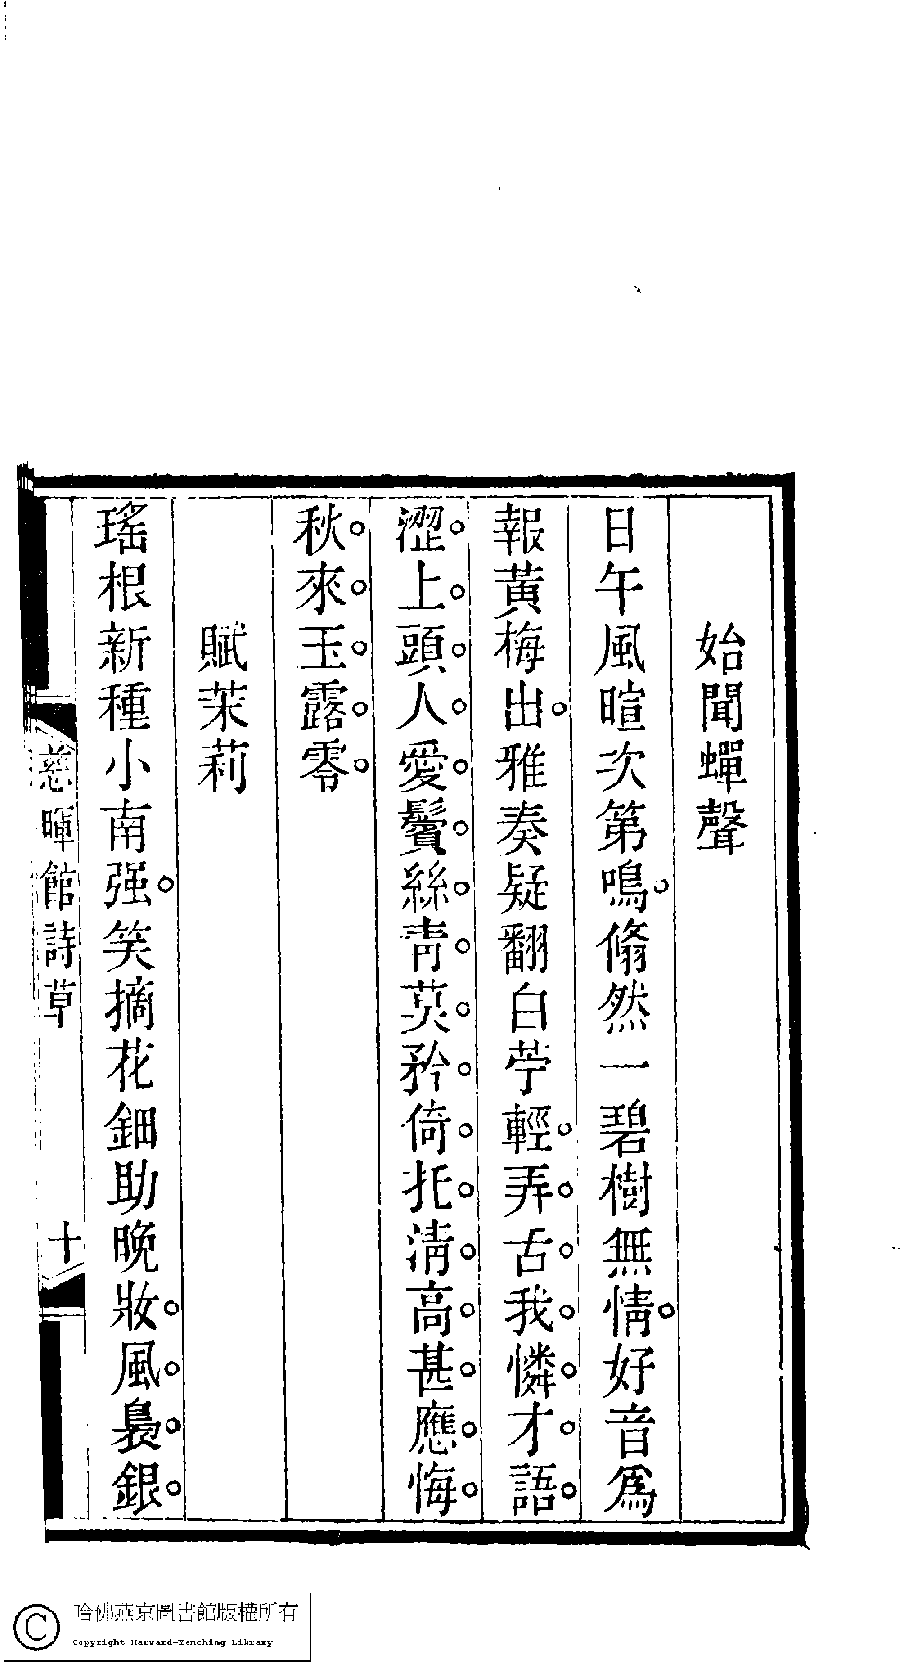 始聞蟬聲
日午風暄次第鳴。翛然一碧樹無情。好音爲
報黃梅出。雅奏疑翻白苧輕。弄。舌。我。憐。才。語。
澀。上。頭。人。愛。鬢。絲。靑。莫。矜。倚。托。淸。高。甚。應。悔。
秋。來。玉。露。零。
賦茉莉
瑤根新種小南强。笑摘花鈿助晚妝。風。裊。銀。
慈暉館詩草
十
哈佛燕京圖書館版權所有
Copyright Harvard-Yenching Library